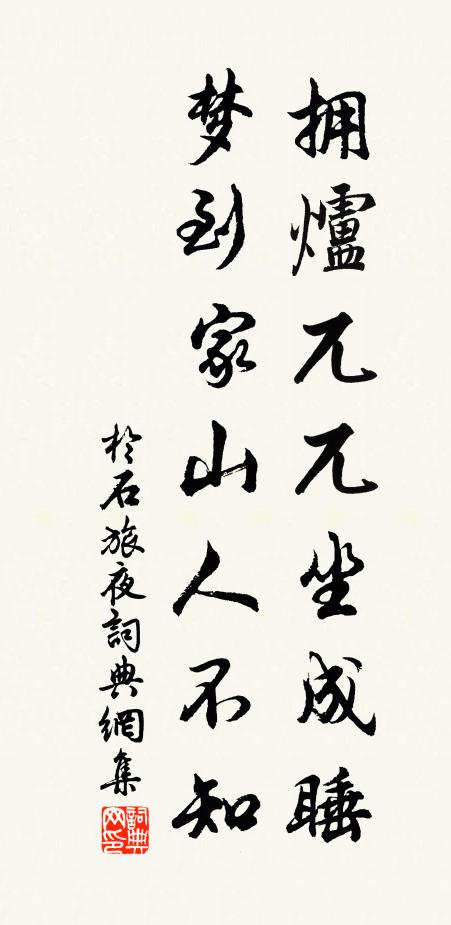 拥爐兀兀坐成睡
梦到家山人不知
於石旅夜詞典網集
詞典网印